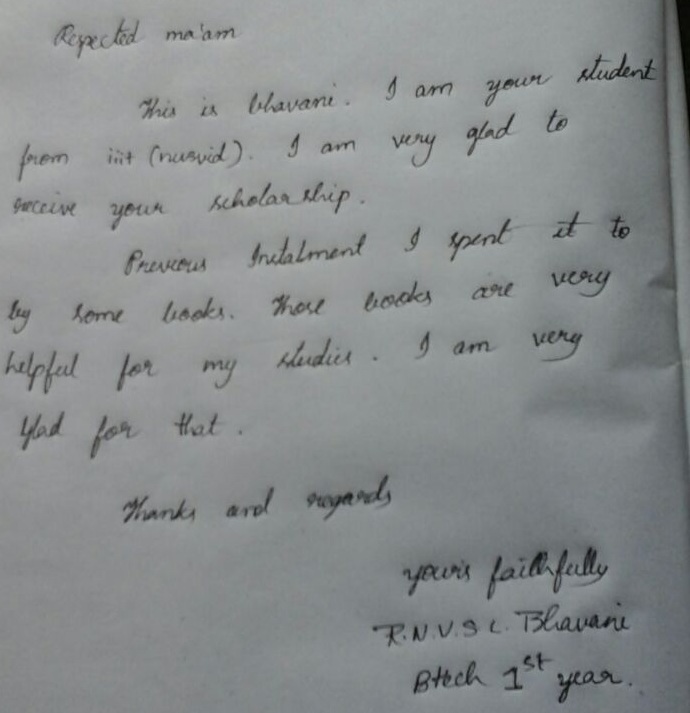 Respected ma'am
This is bhavani. I am your student
from iiit (nuzvid). I am very glad to
receive your scholarship.
Previous Instalment I spent it to
by some books. Those books are very
helpful for my studies. I am very
glad for that.
Thanks and regards
your's faithfully
R.N.V.S L. Bhavani
Btech 1st year.